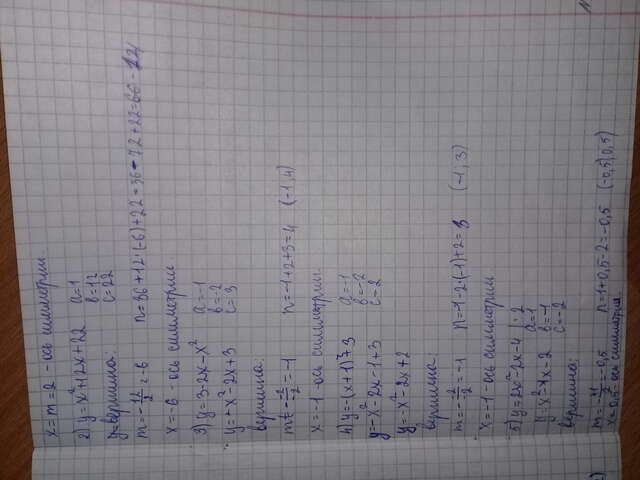 x = m = 2 - ось симметрии.
2) y = x²+12x+22 a=1
b=12
вершина: c=22
m = -12/2 = -6 n = 36+12·(-6)+22 = 36-72+22=
x = -6 - ось симметрии
3) y = 3-2x-x² a=-1
b=-2
y = -x²-2x+3 c=3
вершина:
m = - -2/-2 = -1 n = -1+2+3=4 (-1,4)
x = -1 - ось симметрии
4) y = -(x+1)²+3 a=-1
b=-2
y = -x²-2x-1+3 c=2
y = -x²-2x+2
вершина:
m = - -2/-2 = -1 n = -1-2·(-1)+2 = 3 (-1, 3)
x = -1 - ось симметрии
5) y = 2x²-2x-4 |: 2
a=1
y = x²-1x-2 b=-1
c=-2
вершина:
n = 1+0,5-2 = -0,5 (-0,5|0,5)
x = 0,5 - ось симметрия.